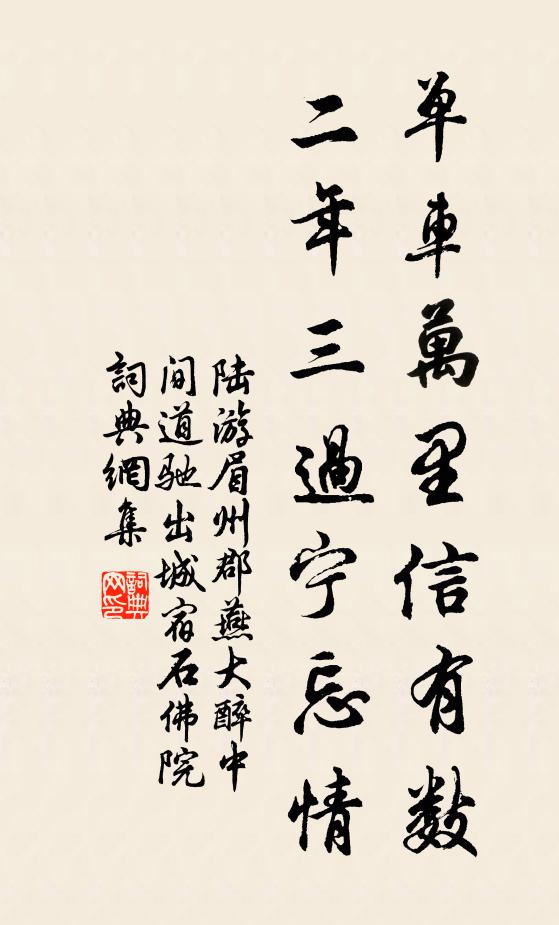 单車萬里信有数
二年三過宁忘情
陆游眉州郡燕大醉中
间道驰出城宿石佛院
詞典網集
詞典网印